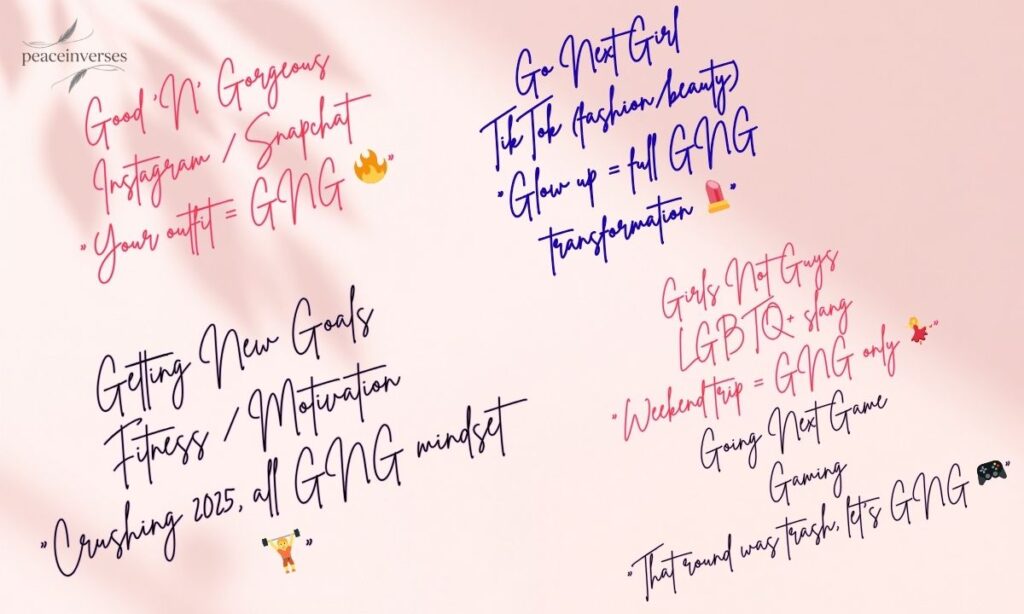 peaceinverses
Good 'N' Gorgeous
Instagram / Snapchat
"Your outfit = GNG 🔥"
Go Next Girl
TikTok (fashion/beauty)
"Glow up = full GNG
transformation 💄"
Getting New Goals
Fitness / Motivation
"Crushing 2025, all GNG mindset
🏋️"
Girls Not Guys
LGBTQ+ slang
"Weekend trip = GNG only 💃"
Going Next Game
Gaming
"That round was trash, let's GNG 🎮"